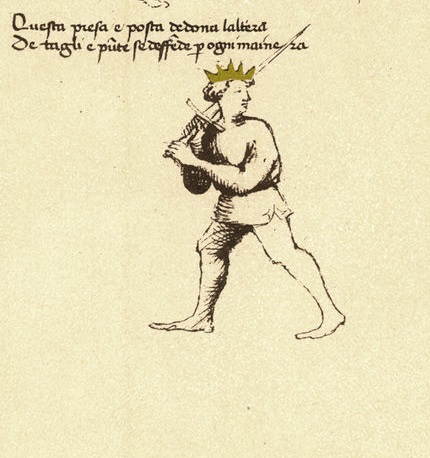 Questa presa e posta de dona laltera
De tagli e pūte se deffēde p ogni maine ra